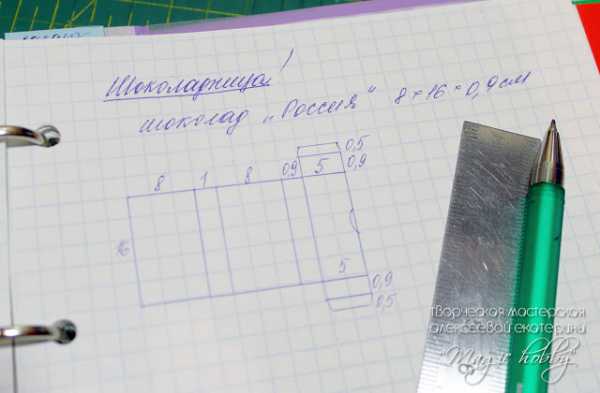 Шоколадница!
шоколад „Россия“ 8 × 16 × 0,9 см
0,5
8 1 8 0,9 5 0,9
16
5
0,9
0,5
творческая мастерская
алексеевой екатерины
"Magic hobby"